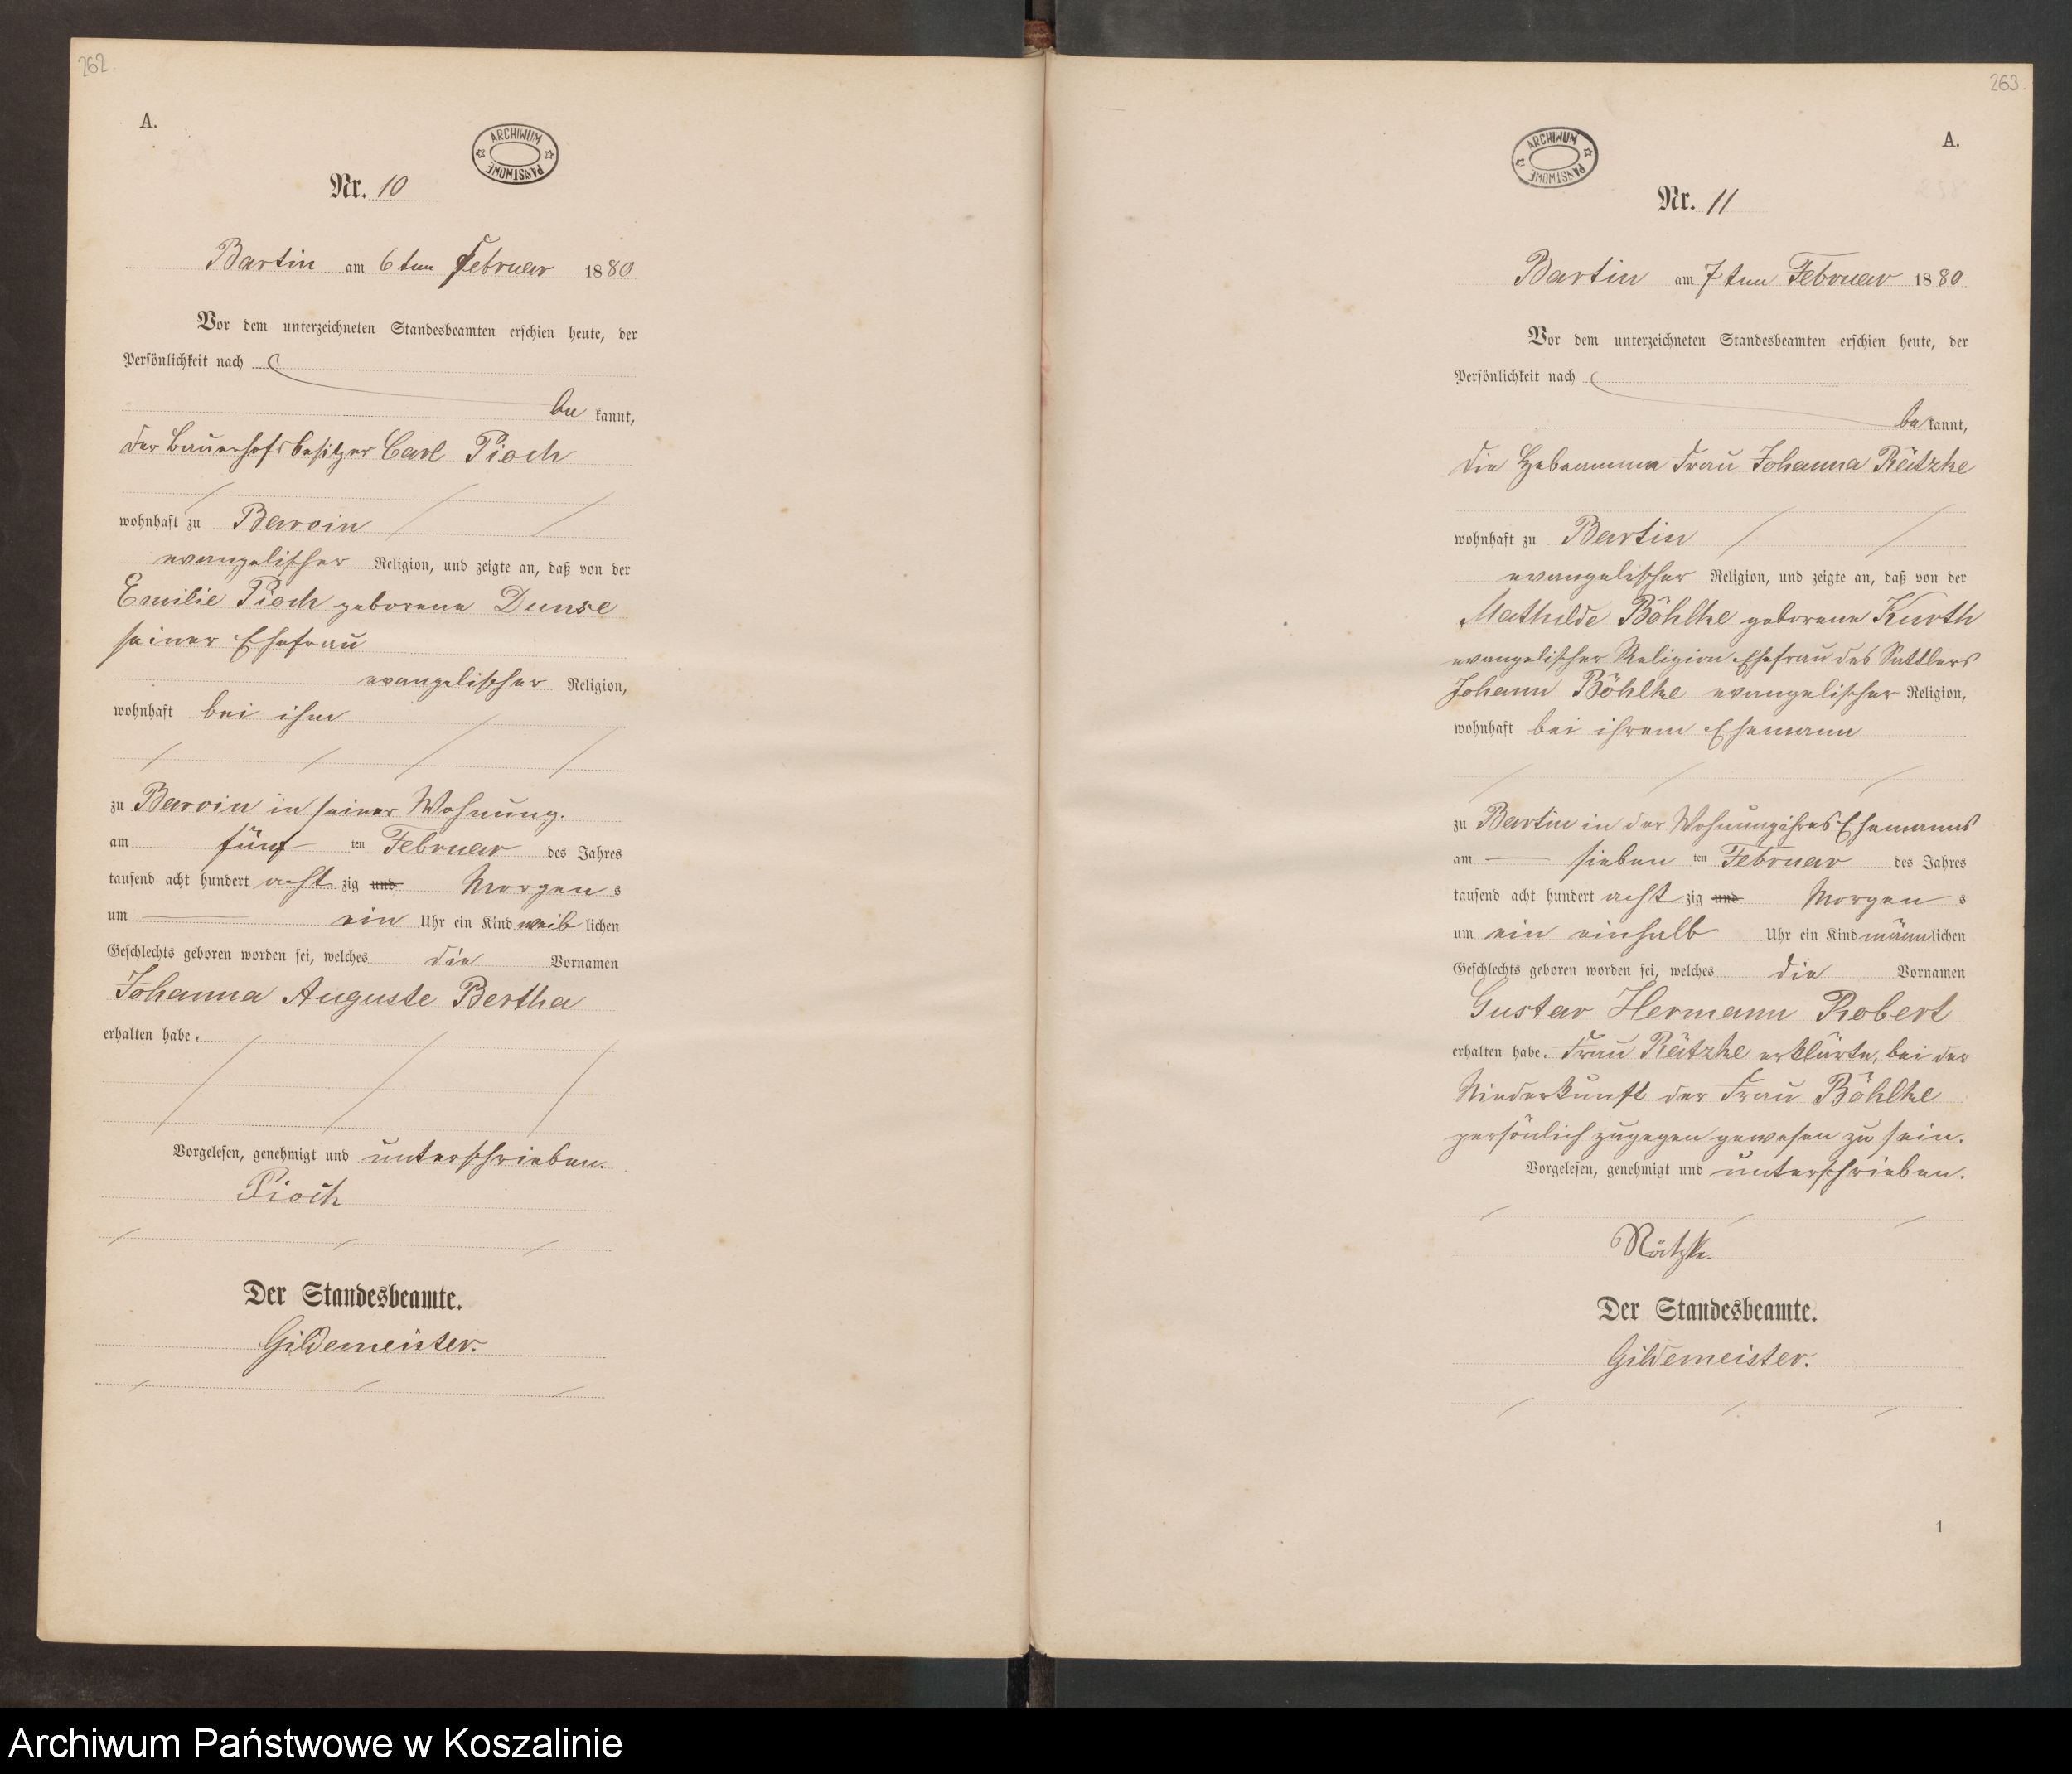 262.
A.
ARCHIWUM PAŃSTWOWE
Nr. 10
Bartin am 6ten Februar 1880
Vor dem unterzeichneten Standesbeamten erschien heute, der
Persönlichkeit nach
be kannt,
der Bauerhofsbesitzer Carl Pioch
wohnhaft zu Barvin
evangelischer Religion, und zeigte an, daß von der
Emilie Pioch geborene Dunse
seiner Ehefrau
evangelischer Religion,
wohnhaft bei ihm
zu Barvin in seiner Wohnung.
am fünf ten Februar des Jahres
tausend acht hundert acht zig und Morgen s
um ein Uhr ein Kind weib lichen
Geschlechts geboren worden sei, welches die Vornamen
Johanna Auguste Bertha
erhalten habe.
Vorgelesen, genehmigt und unterschrieben.
Pioch
Der Standesbeamte.
Gildemeister.
263.
A.
ARCHIWUM PAŃSTWOWE
Nr. 11
Bartin am 7ten Februar 1880
Vor dem unterzeichneten Standesbeamten erschien heute, der
Persönlichkeit nach
be kannt,
die Hebeamme Frau Johanna Rätzke
wohnhaft zu Bartin
evangelischer Religion, und zeigte an, daß von der
Mathilde Böhlke geborene Kurth
evangelischer Religion Ehefrau des Sattlers
Johann Böhlke evangelischer Religion,
wohnhaft bei ihrem Ehemann
zu Bartin in der Wohnung ihres Ehemanns
am sieben ten Februar des Jahres
tausend acht hundert acht zig und Morgen s
um ein einhalb Uhr ein Kind männ lichen
Geschlechts geboren worden sei, welches die Vornamen
Gustav Hermann Robert
erhalten habe. Frau Rätzke erklärte, bei der
Niederkunft der Frau Böhlke
persönlich zugegen gewesen zu sein.
Vorgelesen, genehmigt und unterschrieben.
Rätzke.
Der Standesbeamte.
Gildemeister.
1
Archiwum Państwowe w Koszalinie